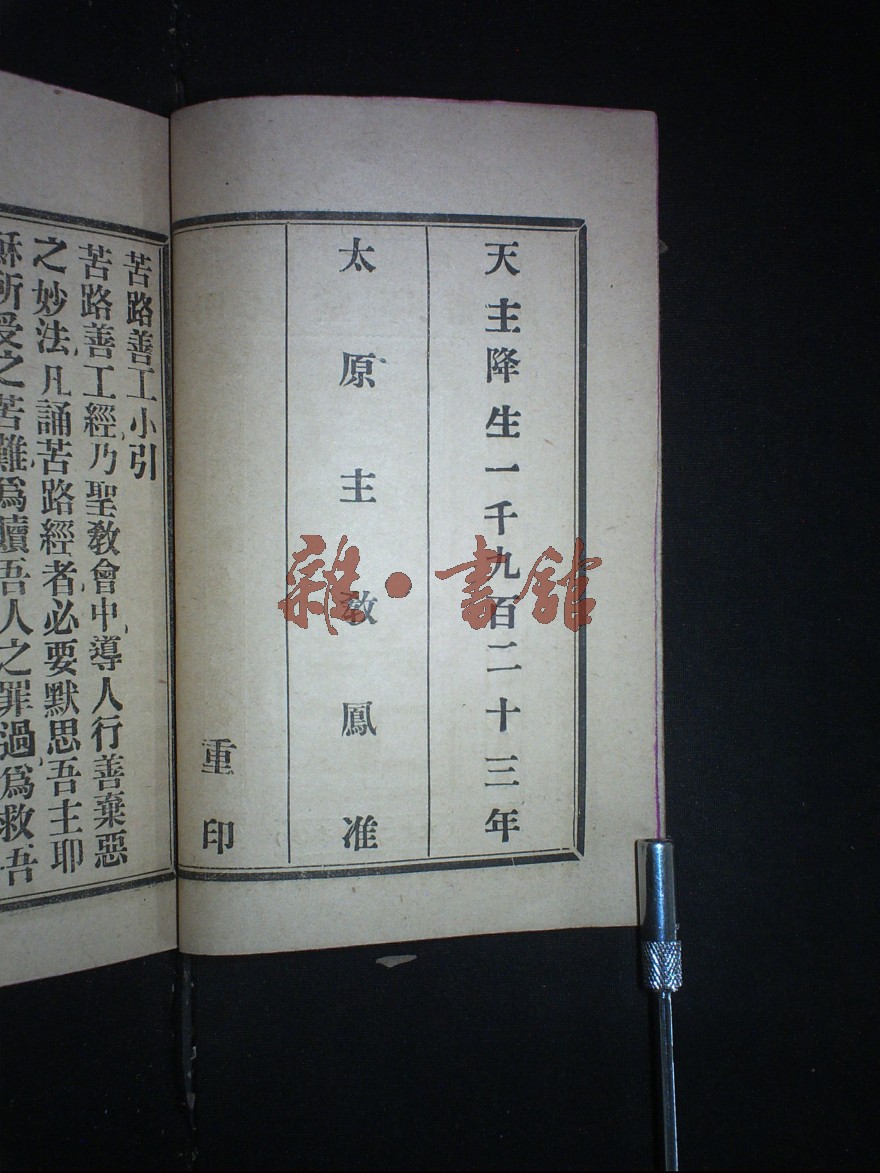 天主降生一千九百二十三年
太原主教鳳准
重印
苦路善工小引
苦路善工經乃聖教會中導人行善棄惡
之妙法凡誦苦路經者必要默思吾主耶
穌所受之苦難爲贖吾人之罪過爲救吾
雜·書館